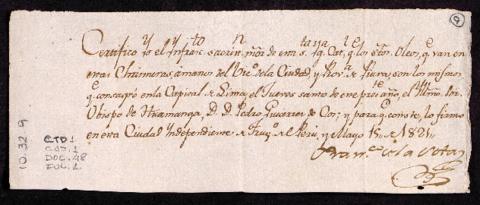 9
Certifico yo el Infrascrito Sacristn. mór. de esta Sta. Ya. Cat. q. los Stos. Oleos, q. van en
estas Chrismeras a manos del Vico. de la Ciudad, y Prova. de Piura, son los mismos
q. consagró en la Capital de Lima, el Jueves santo de este pres. año, el Illmo. Sor.
Obispo de Huamanga, D. D. Pedro Gutierrez de Cos; y para q. conste, lo firmo
en esta Ciudad Independiente de Truxo. del Perú, y Mayo 15 de 1821
Franco. de la
10.32.9
CTD 1
COD. 1
DOC. 48
FOL. 1